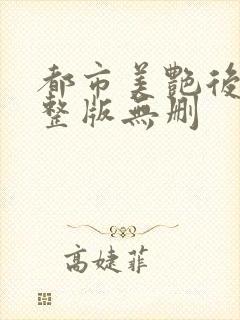 都市美艷後
整版無删
高婕菲